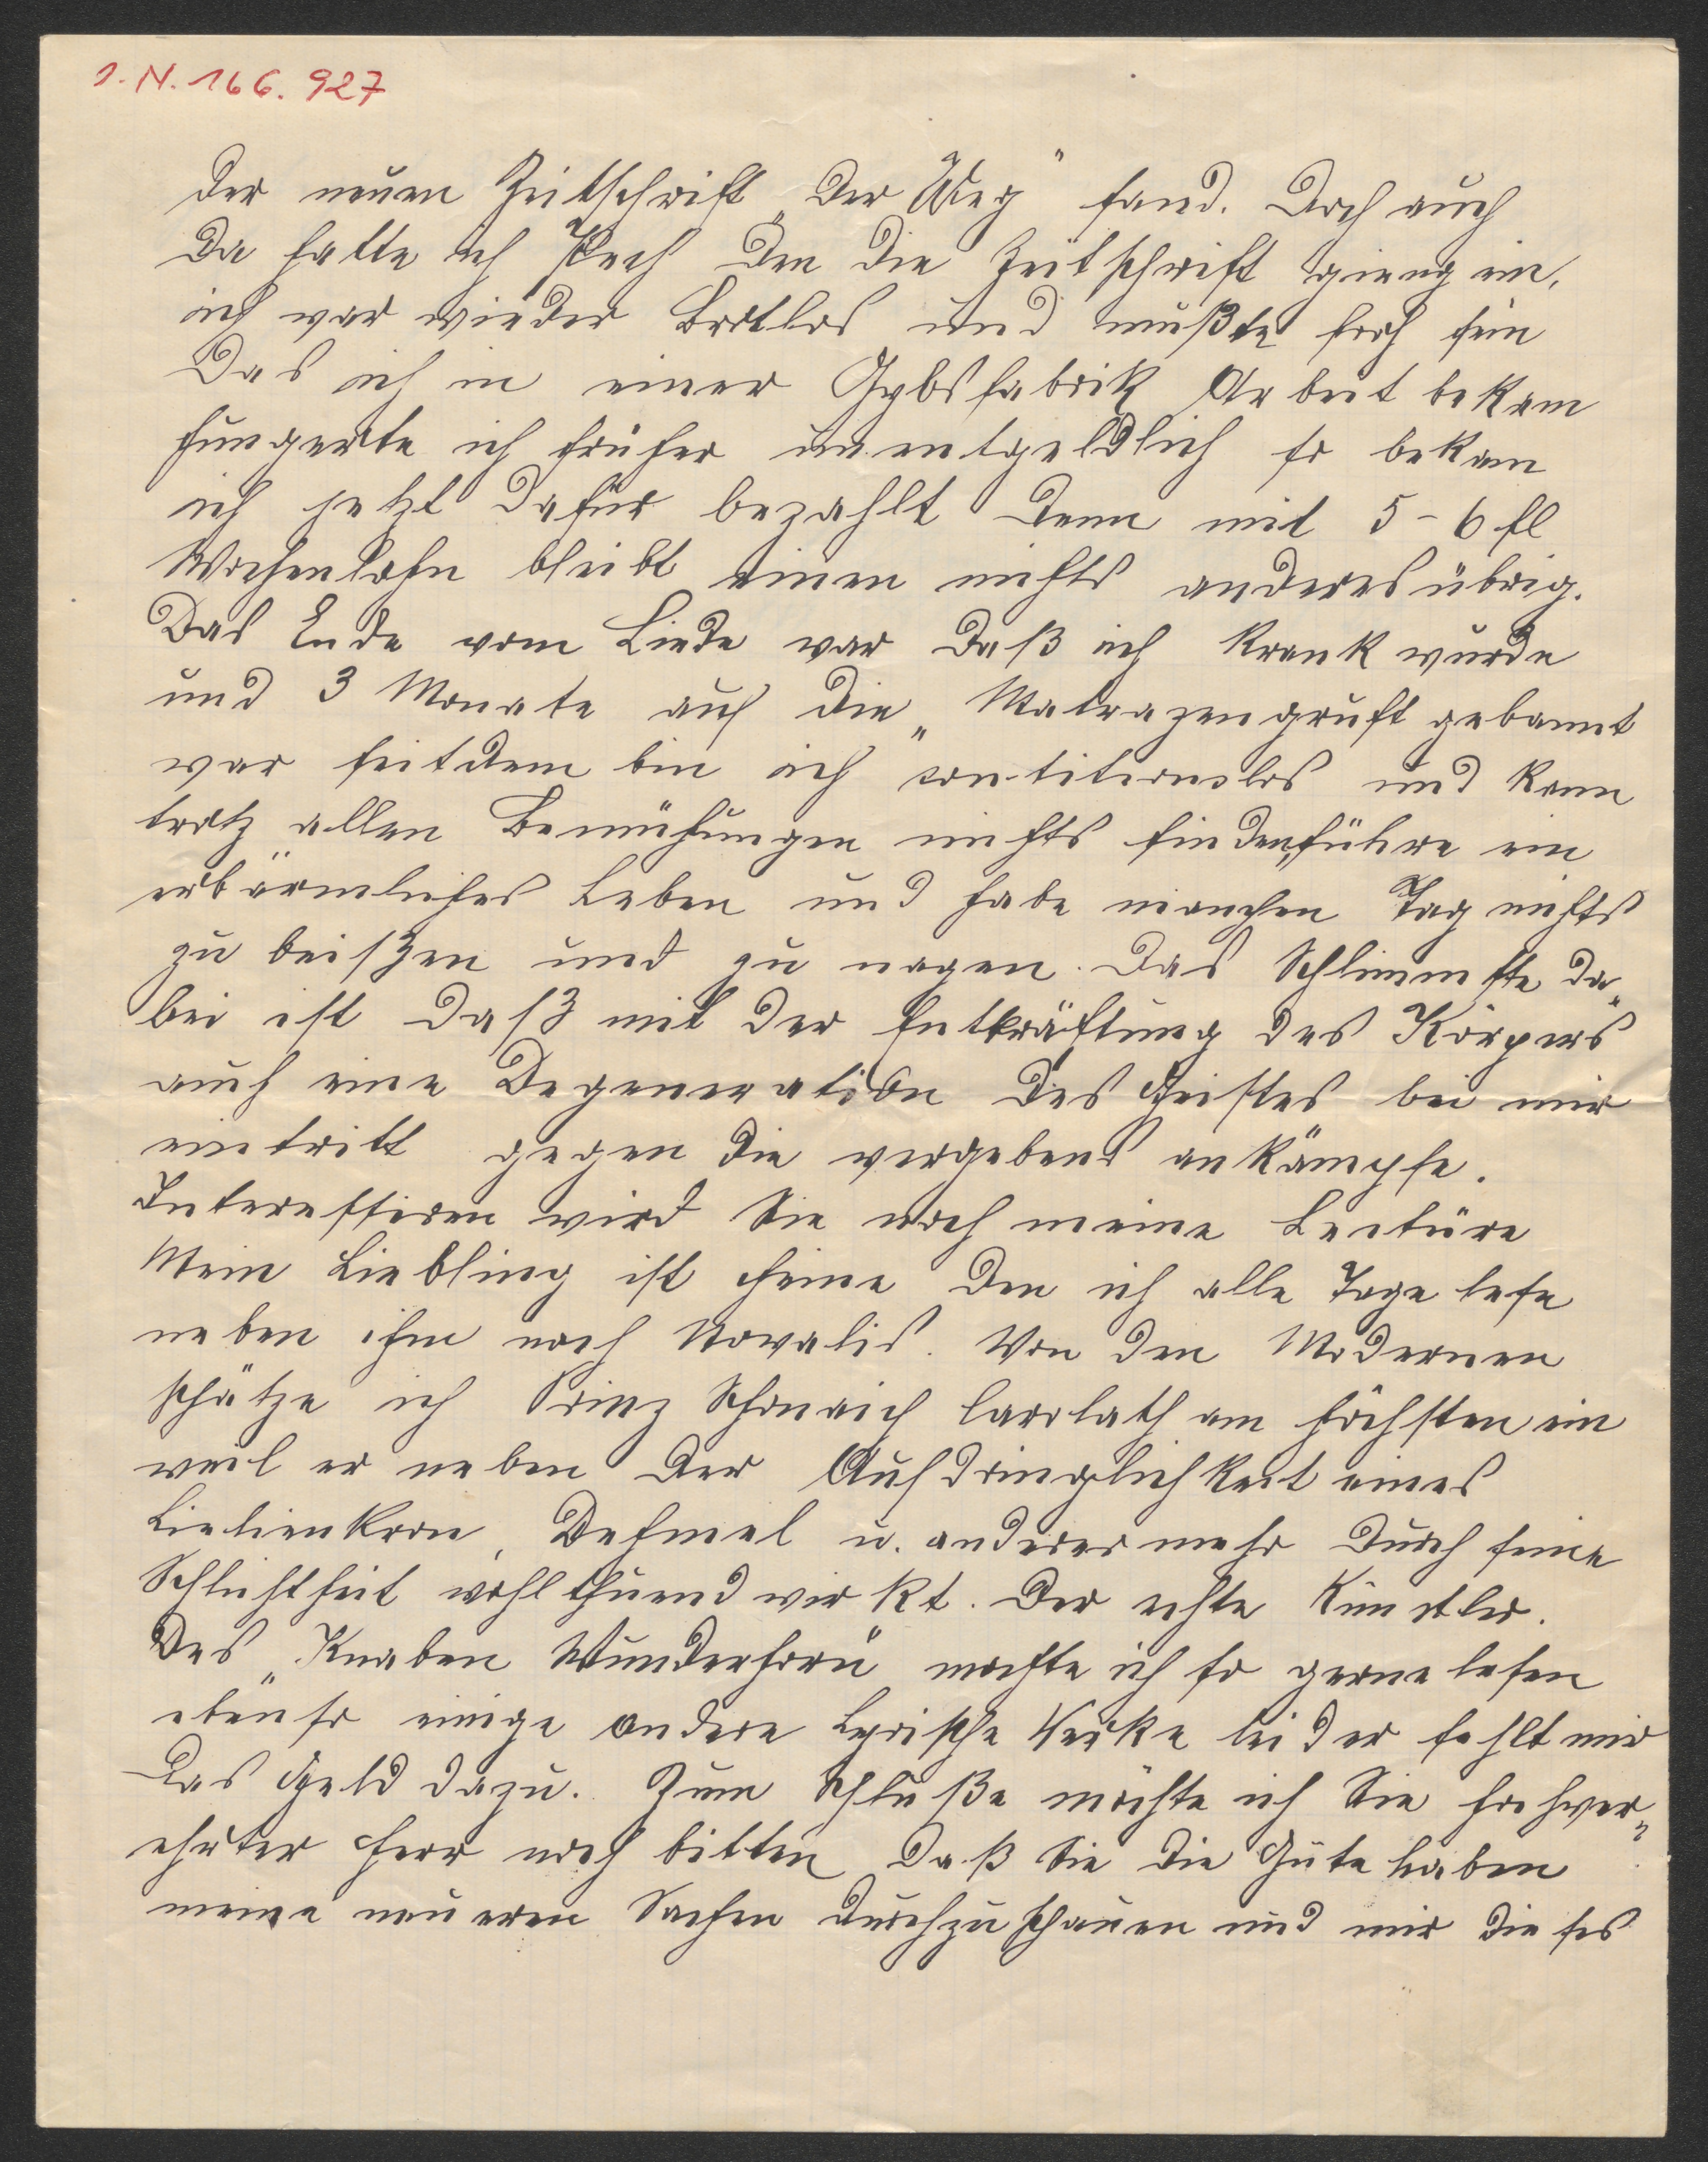 I. N. 166.927
der neuen Zeitschrift „Der Weg“ fand. Doch auch
da hatte ich Pech den die Zeitschrift gieng ein,
ich war wieder Brotlos und mußte froh sein
Das ich in einer Gybsfabrik Arbeit bekam
hungerte ich früher unentgeldlich so bekam
ich jetzt dafür bezahlt denn mit 5-6 fl
Wochenlohn bleibt einen nichts anderes übrig.
Das Ende vom Liede war daß ich krank wurde
und 3 Monate auf die „Matrazengruft gebannt
war seitdem bin ich contitionslos und kann
trotz allen Bemühungen nichts finden, führe ein
erbärmliches Leben und habe manchen Tag nichts
zu beißen und zu nagen. Das Schlimmste da„
bei ist daß mit der Entkräftung des Körpers
auch eine Degeneration des Geistes bei mir
eintritt gegen die vergebens ankämpfe.
Interessiren wird Sie noch meine Lectüre
Mein Liebling ist Heine den ich alle Tage lese
neben ihm noch Novalis. Von den Modernen
schätze ich Prinz Schönaich Carolath am höchsten ein
weil er neben der Aufdringlichkeit eines
Lielienkron, Dehmel u. anderer mehr durch seine
Schlichtheit wohlthuend wirkt. Der echte Künstler.
Des „Knaben Wunderhorn“ mochte ich so gerne lesen
ebenso einige andere Lyrische Werke leider fehlt mir
Das Geld dazu. Zum Schluße möchte ich Sie hochver„
ehrter Herr noch bitten daß Sie die Güte haben
meine neueren Sachen durchzuschauen und mir dieses